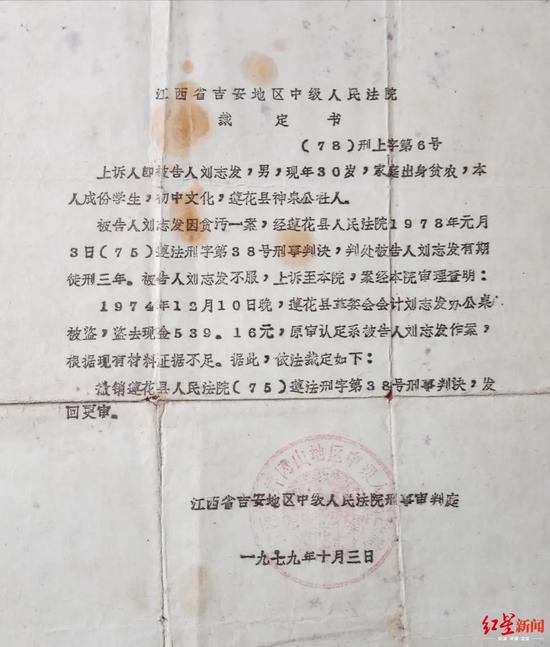 江西省吉安地区中级人民法院
裁定书
(78)刑上字第6号
上诉人即被告人刘志发,男,现年30岁,家庭出身贫农,本
人成份学生,初中文化,莲花县神泉公社人。
被告人刘志发因贪污一案,经莲花县人民法院1978年元月
3日(75)莲法刑字第38号刑事判决,判处被告人刘志发有期
徒刑三年。被告人刘志发不服,上诉至本院,案经本院审理查明:
1974年12月10日晚,莲花县革委会会计刘志发办公桌
被盗,盗去现金539.16元,原审认定系被告人刘志发作案,
根据现有材料证据不足。据此,依法裁定如下:
撤销莲花县人民法院(75)莲法刑字第38号刑事判决,发
回更审。
江西省吉安地区中级人民法院刑事审判庭
一九七九年十月三日
红星新闻